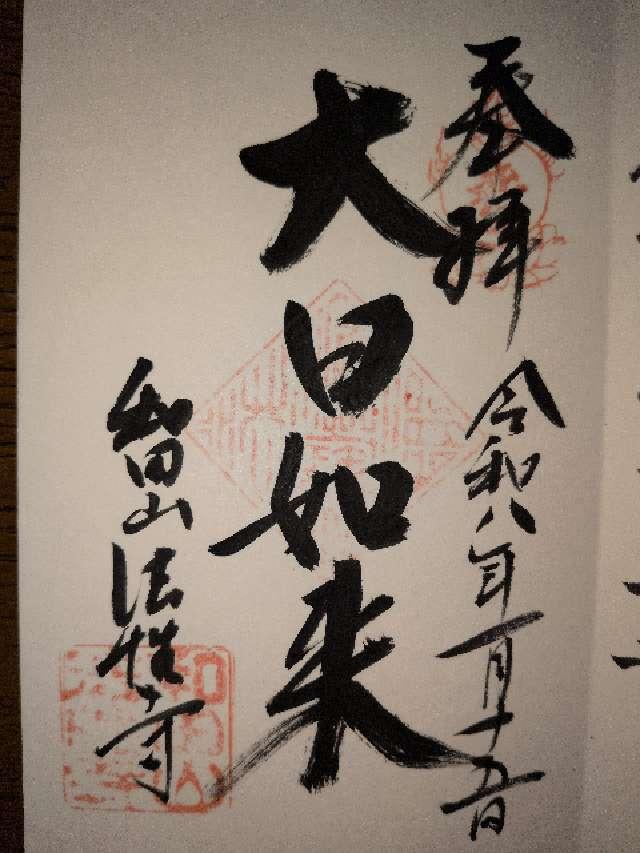 奉拝
令和八年一月十五日
大日如来
和田山
法性寺